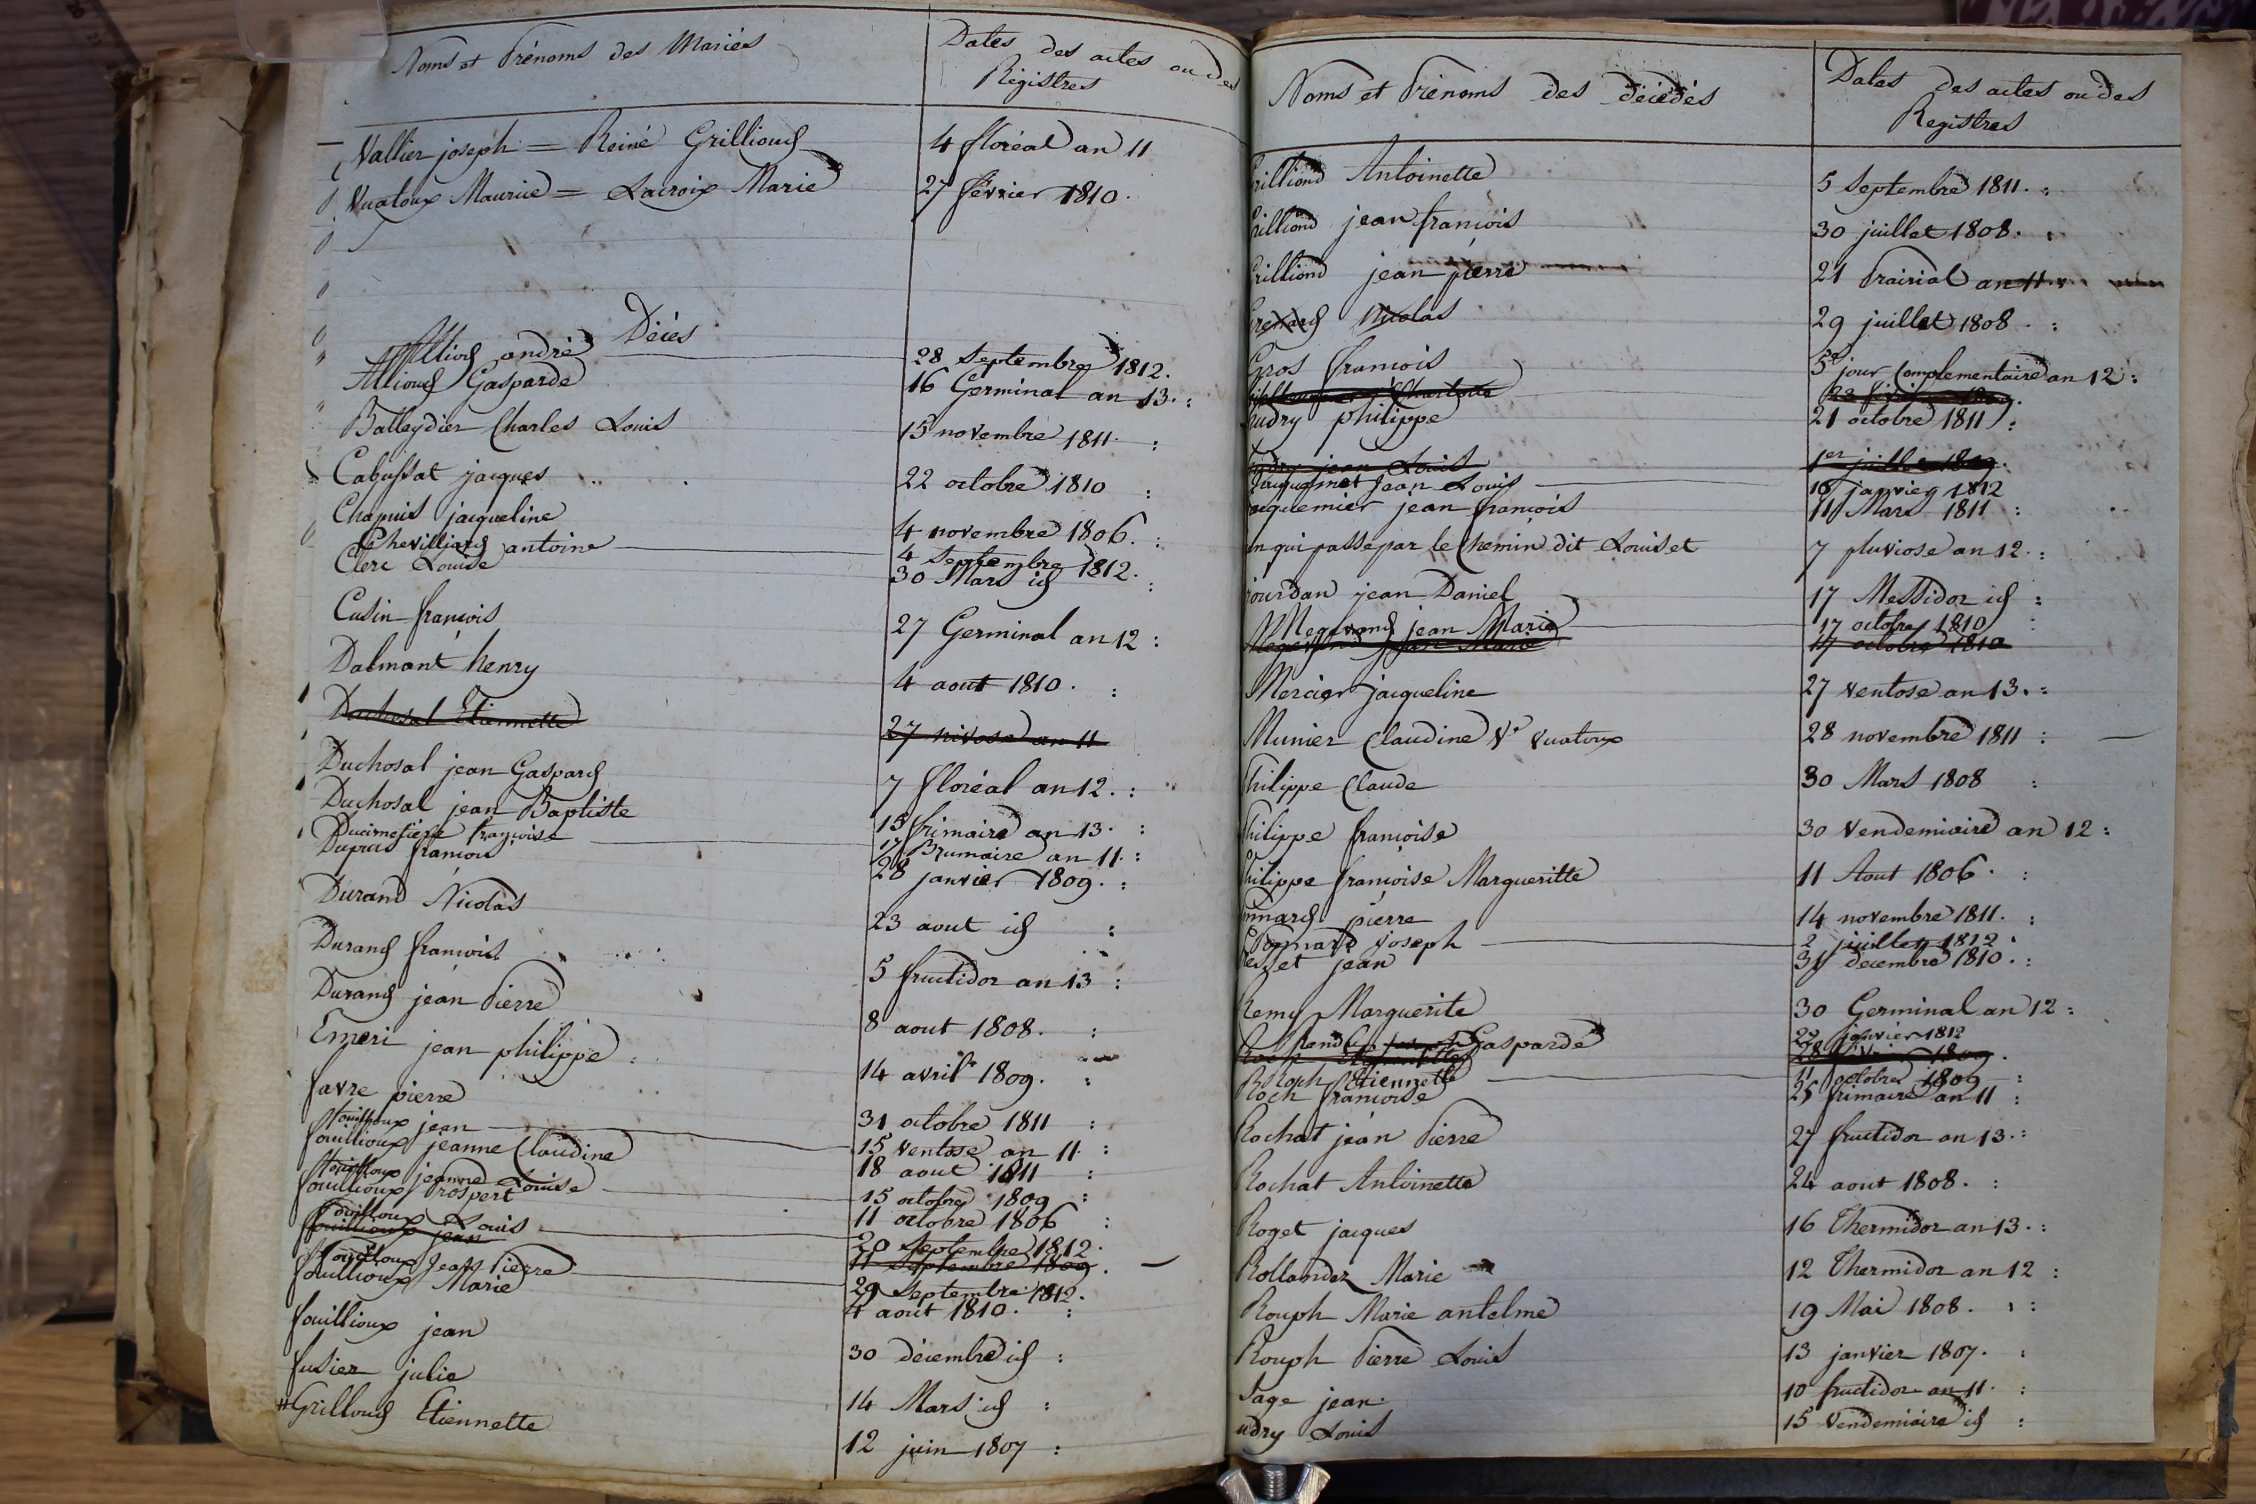 Noms et Prénoms des Mariés
Dates des actes ou des
Régistres
Vallier joseph = Reiné Grilliond 4 floréal an 11
Vuatoux Maurice = Lacroix Marie 27 février 1810.
Décés
Alliod andré 28 septembre 1812.
Alliond Gasparde 16 Germinal an 13.
Balleydier Charles Louis 15 novembre 1811.
Cabussat jacques 22 octobre 1810
Chapuis jacqueline 4 novembre 1806.
Chevilliard antoine 4 Septembre 1812.
Clerc Louise 30 Mars id
Cusin françois 27 Germinal an 12
Dalmant henry 4 aout 1810.
Duchosal Etiennette 27 nivose an 11
Duchosal jean Gaspard 7 floréal an 12.
Duchosal jean Baptiste 15 frimaire an 13.
Ducimetiere françoise 17 Brumaire an 11.
Dupras françois 28 janvier 1809.
Durand Nicolas 23 aout id
Durand françois 5 fructidor an 13
Durand jean Pierre 8 aout 1808.
Emeri jean philippe 14 avril 1809.
favre pierre 31 octobre 1811
fouillioux jean 15 ventose an 11
fouillioux jeanne Claudine 18 aout 1811
fouillioux jeanne Louise 15 octobre 1809
fouillioux Prospert 11 octobre 1806
fouilloux Louis 20 Septembre 1812.
fouillioux jean 11 septembre 1809.
fouilloux Jean Pierre 29 Septembre 1812.
fouillioux Marie 4 aout 1810.
fouillioux jean 30 décembre id
fusier julie 14 Mars id
Grilloud Etiennette 12 juin 1807
Noms et Prénoms des décédés
Dates des actes ou des
Registres
Grilliond Antoinette 5 Septembre 1811.
Grilliond jean françois 30 juillet 1808.
Grilliond jean pierre 21 Prairial an 11
Nicolas 29 juillet 1808
Gros francois 5e jour Complementaire an 12
Charlotte
udry philippe 21 octobre 1811
jean Louis 1er juillet 1809.
Jacquemet Jean Louis 10 janvier 1812
acquemier jean françois 11 Mars 1811
un qui passe par le Chemin dit Louis et 7 pluviose an 12.
jourdan jean Daniel 17 Messidor id
Megevand jean Marie 17 octobre 1810
Megevand jean Marie 17 octobre 1810
Mercier jacqueline 27 ventose an 13.
Munier Claudine Ve Vuatoux 28 novembre 1811
Philippe Claude 30 Mars 1808
Philippe françoise 30 Vendemiaire an 12
Philippe françoise Margueritte 11 Aout 1806.
nnard pierre 14 novembre 1811.
Ponnard joseph 2 juillet 1812
esset jean 31 decembre 1810.
Remy Marguerite 30 Germinal an 12
Gasparde 22 janvier 1812
Roch Etiennette 11 octobre 1809
Roch françoise 25 frimaire an 11
Rochat jean Pierre 27 fructidor an 13.
Rochat Antoinette 24 aout 1808.
Roget jacques 16 Thermidor an 13.
Rollander Marie 12 Thermidor an 12
Rouph Marie antelme 19 Mai 1808.
Rouph Pierre Louis 13 janvier 1807.
Sage jean. 10 fructidor an 11.
udry Louis 15 Vendemiaire id